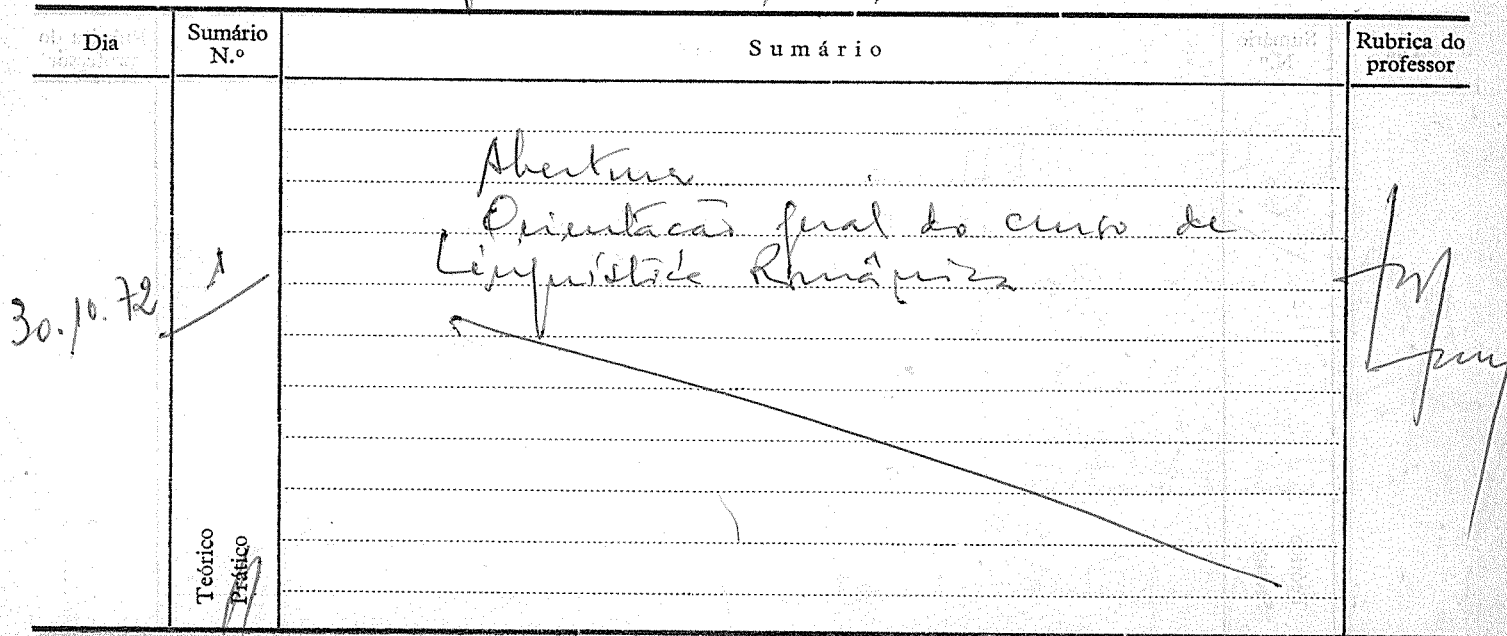 Dia
Sumário N.º
Sumário
Rubrica do professor
30.10.72
1
Abertura
Orientação geral do curso de
Linguística Românica
Teórico
Prático